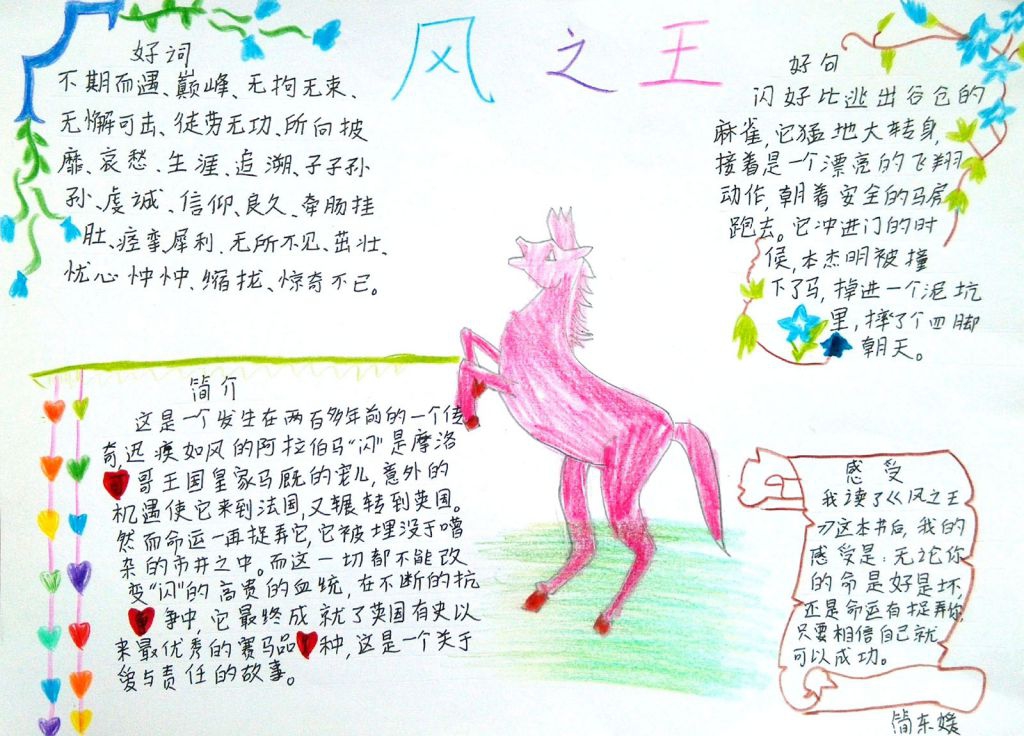 风之王
好词
不期而遇、巅峰、无拘无束、
无懈可击、徒劳无功、所向披
靡、哀愁、生涯、追溯、子子孙
孙、虔诚、信仰、良久、牵肠挂
肚、痉挛、犀利、无所不见、茁壮、
忧心忡忡、缩拢、惊奇不已。
好句
闪好比逃出谷仓的
麻雀,它猛地大转身,
接着是一个漂亮的飞翔
动作,朝着安全的马房
跑去。它冲进门的时
候,本杰明被撞
下了马,掉进一个泥坑
里,摔了个四脚
朝天。
简介
这是一个发生在两百多年前的一个传
奇,迅疾如风的阿拉伯马“闪”是摩洛
哥王国皇家马厩的宠儿,意外的
机遇使它来到法国,又辗转到英国。
然而命运一再捉弄它,它被埋没于嘈
杂的市井之中。而这一切都不能改
变“闪”的高贵的血统,在不断的抗
争中,它最终成就了英国有史以
来最优秀的赛马品种,这是一个关于
爱与责任的故事。
感受
我读了《风之王
》这本书后,我的
感受是:无论你
的命是好是坏,
还是命运有捉弄你,
只要相信自己就
可以成功。
简东媛